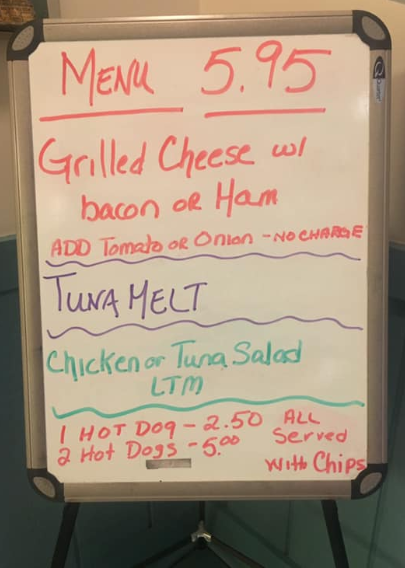 MENU 5.95
Grilled Cheese w/
bacon OR Ham
ADD Tomato or Onion - NO CHARGE
TUNA MELT
Chicken or Tuna Salad
LTM
1 HOT DOG - 2.50 ALL
2 Hot Dogs - 5.00 Served
With Chips